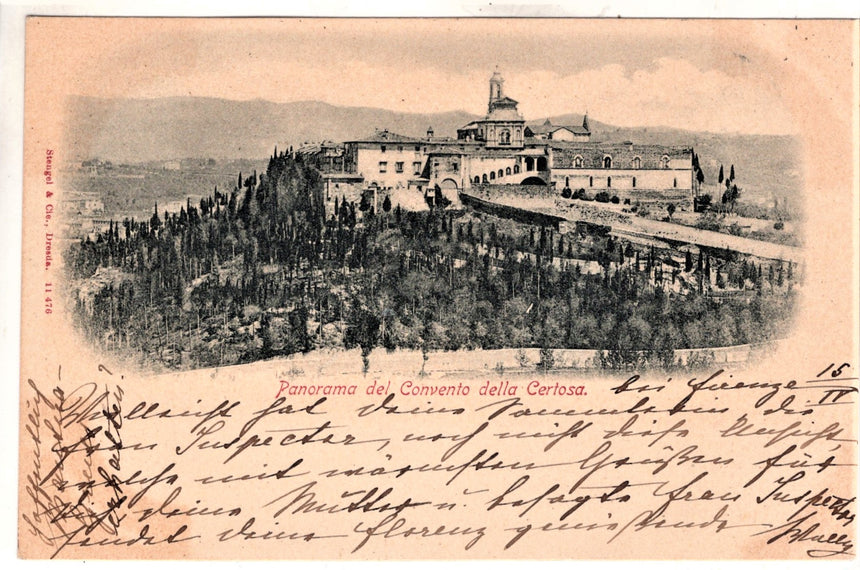 Stengel & Cie., Dresda. 11 476
Panorama del Convento della Certosa.
bei Firenze 15/IV
Vielleicht hat deine Sammlerin die
Frau Inspector, noch nicht diese Ansicht,
welche mit wärmsten Grüßen für
deine Mutter u. besagte Frau Inspector
sendet deine Florenz genießende
Wally
hoffentlich
erhalten?